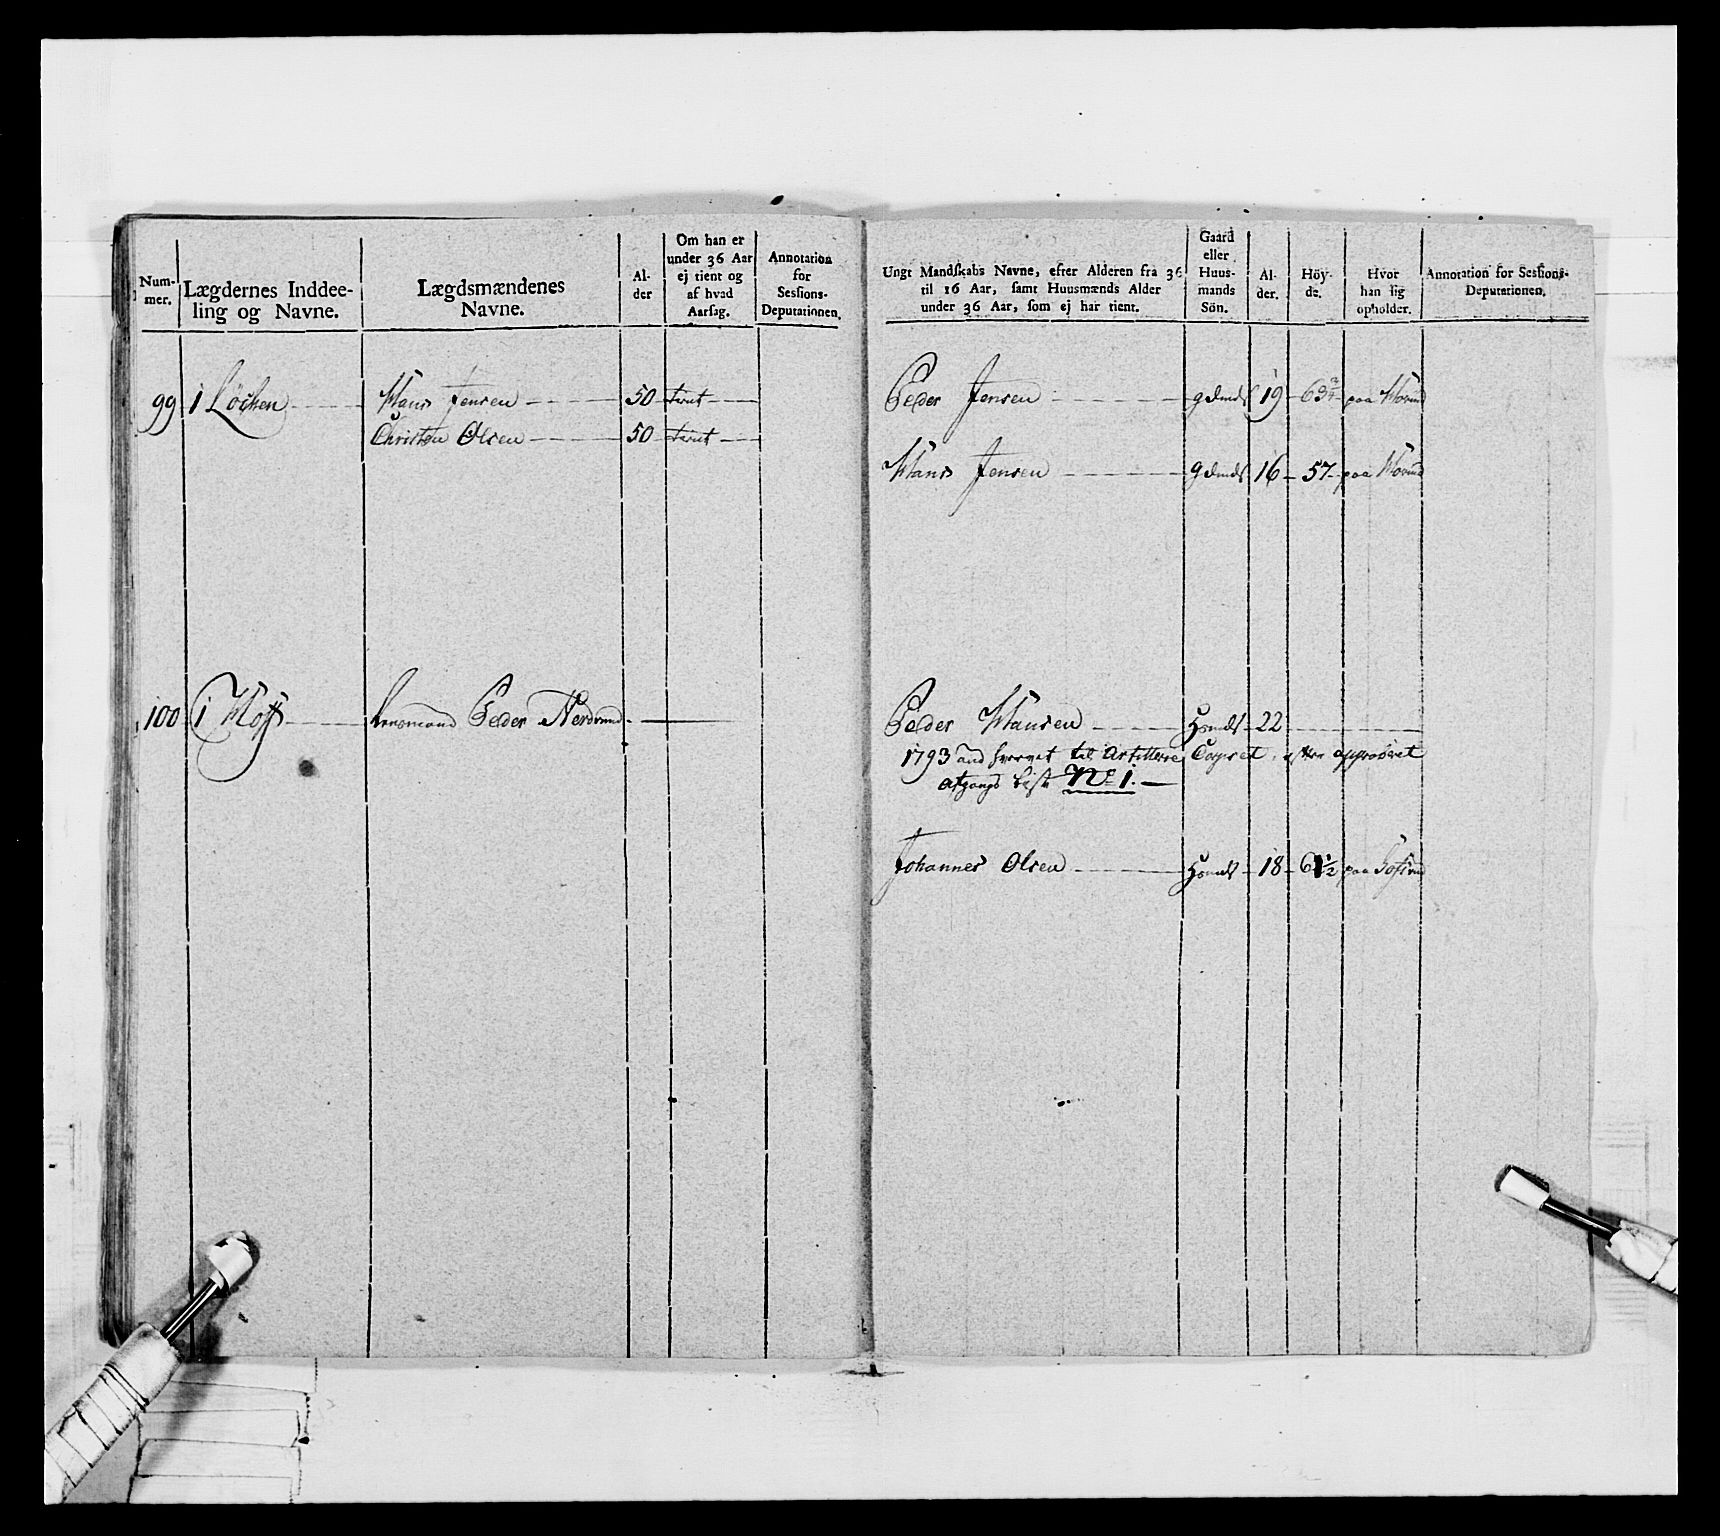 Num-
mer.
Lægdernes Inddee-
ling og Navne.
Lægdsmændenes
Navne.
Al-
der
Om han er
under 36 Aar
ej tient og
af hvad
Aarsag.
Annotation
for
Sessions-
Deputationen.
99 1 Løchen Hans Jensen 50 tient
Christen Olsen 50 tient
100 1 Lensmand Peder Nordrund
Ungt Mandskabs Navne, efter Alderen fra 36
til 16 Aar, samt Huusmænds Alder
under 36 Aar, som ej har tient.
Gaard
eller
Huus-
mands
Sön.
Al-
der.
Höy-
de.
Hvor
han sig
opholder.
Annotation for Sessions-
Deputationen.
Peder Jensen gdmds 19 63 3/4 paa
Hans Jensen gdmds 16 57 paa
Peder Hansen Hsmds 22
1793 til Artillerie Corpset, efter approberet
afgangs Liste No 1.
Johannes Olsen Hsmds 18 61 1/2 paa